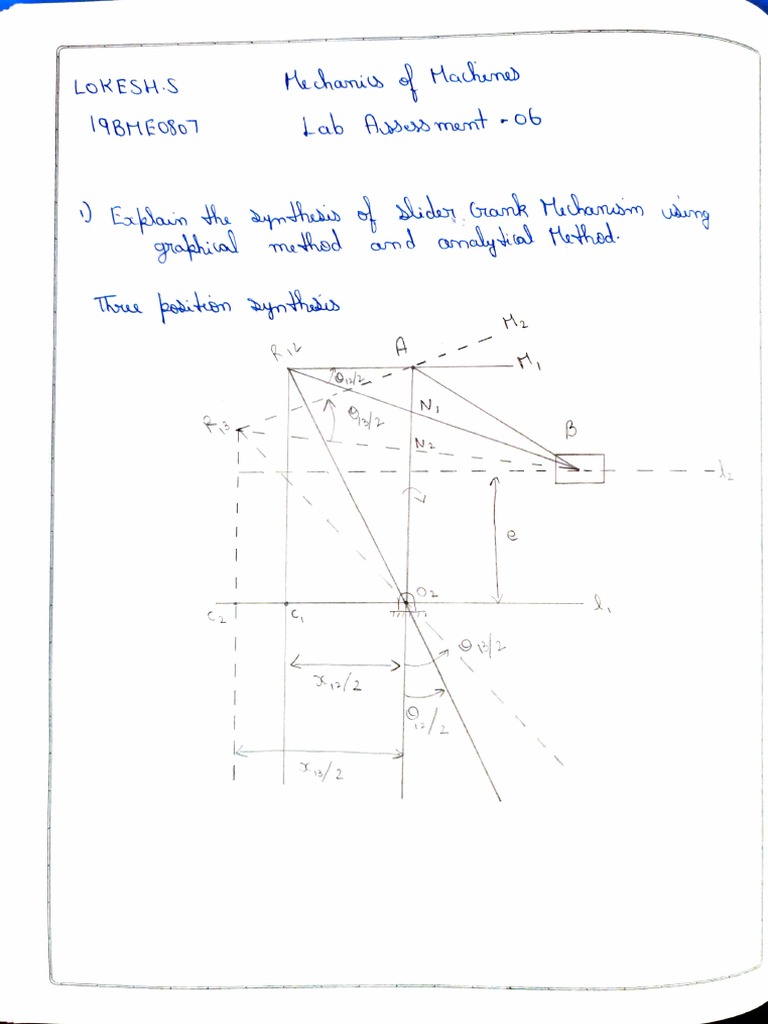 LOKESH.S Mechanics of Machines
19BME0807 Lab Assessment - 06
1) Explain the synthesis of slider Crank Mechanism using
graphical method and analytical Method.
Three position synthesis
M2
R12 A M1
θ12/2
N1
R13 θ13/2 B
N2
l2
e
O2
C2 C1 l1
θ13/2
x12/2
θ12/2
x13/2